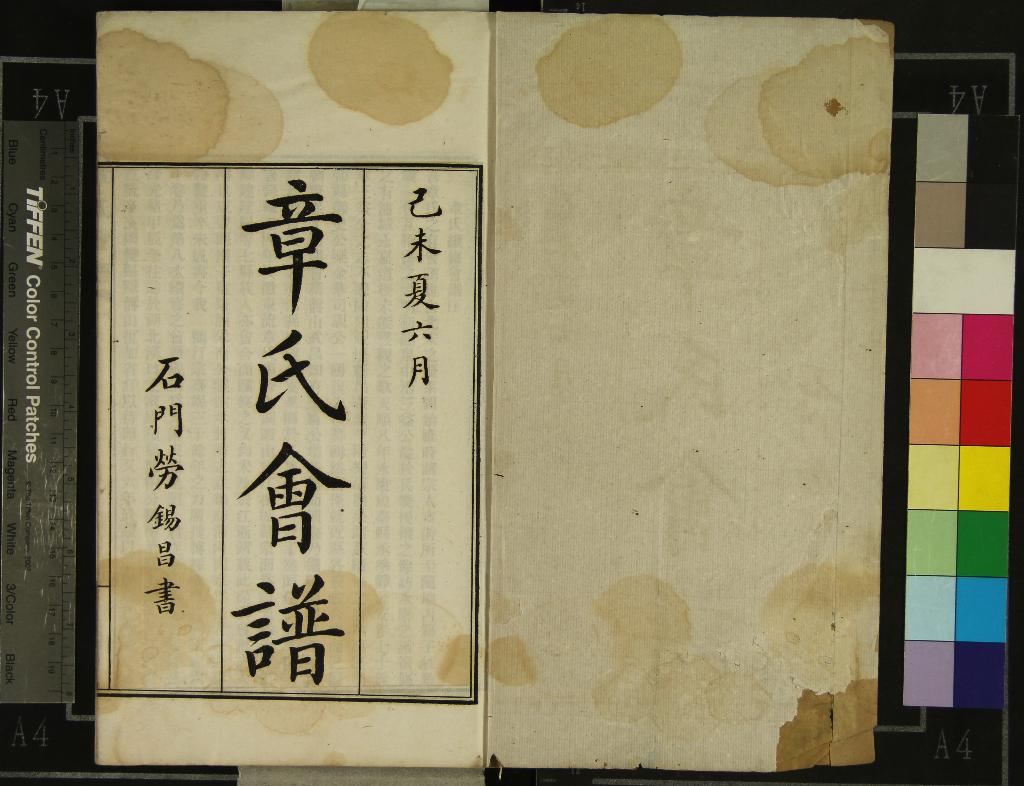 己未夏六月
章氏會譜
石門勞錫昌書
TIFFEN Color Control Patches
Centimetres
Inches
Blue
Cyan
Green
Yellow
Red
Magenta
White
3/Color
Black
A4
A4
A4
A4